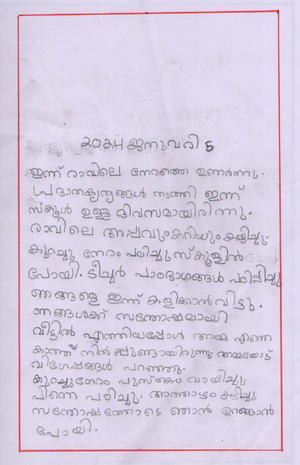 2024 ജനുവരി 5
ഇന്ന് രാവിലെ നേരത്തെ ഉണർന്നു.
പ്രഭാതകൃത്യങ്ങൾ നടത്തി ഇന്ന്
സ്കൂൾ ഉള്ള ദിവസമായിരിന്നു.
രാവിലെ അപ്പവുംകറിയും കഴിച്ചു.
കുറച്ചു നേരം പഠിച്ചു സ്കൂളിൽ
പോയി. ടീച്ചർ പാഠഭാഗങ്ങൾ പഠിപ്പിച്ചു
ഞങ്ങളെ ഇന്ന് കളിക്കാൻവിട്ടു.
ഞങ്ങൾക്ക് സന്തോഷമായി
വീട്ടിൽ എത്തിയപ്പോൾ അമ്മ എന്നെ
കാത്ത് നിൽപ്പുണ്ടായിരുന്നു അമ്മയോട്
വിശേഷങ്ങൾ പറഞ്ഞു.
കുറച്ചുനേരം പുസ്തകം വായിച്ചു.
പിന്നെ പഠിച്ചു. അത്താഴം കഴിച്ചു
സന്തോഷത്തോടെ ഞാൻ ഉറങ്ങാൻ
പോയി.